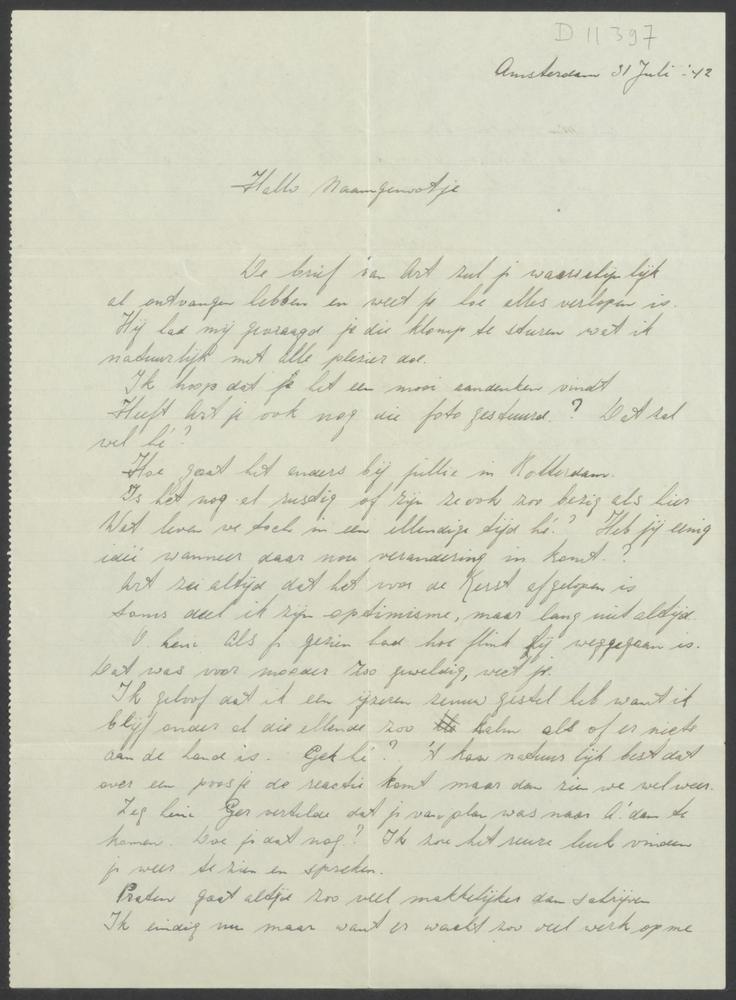 D 11397
Amsterdam 31 Juli '42
Hallo Naamgenootje
De brief van Art zul je waarschijnlijk
al ontvangen hebben en weet je hoe alles verlopen is.
Hij had mij gevraagd je die klomp te sturen wat ik
natuurlijk met alle plezier doe.
Ik hoop dat je het een mooi aandenken vindt
Heeft Art je ook nog die foto gestuurd. ? Dat zal
wel hè ?
Hoe gaat het anders bij jullie in Rotterdam.
Is het nog al rustig of zijn ze ook zoo bezig als hier
Wat leven we toch in een ellendige tijd hè. ? Heb jij eenig
idee wanneer daar nou verandering in komt. ?
Art zei altijd dat het voor de Kerst afgelopen is
Soms deel ik zijn optimisme, maar lang niet altijd.
O. als je gezien had hoe flink hij weggegaan is.
Dat was voor moeder zoo geweldig, weet je.
Ik geloof dat ik een ijzeren zenuw gestel heb want ik
blijf onder al die ellende zoo kalm als of er niets
aan de hand is. Gek hè ? 't kan natuurlijk best dat
over een poosje de reactie komt maar dan zien we wel weer.
Zeg Ger vertelde dat je van plan was naar A'dam te
komen. Doe je dat nog ? Ik zou het reuze leuk vinden
je weer te zien en spreken.
Praten gaat altijd zoo veel makkelijker dan schrijven
Ik eindig nu maar want er wacht zoo veel werk op me